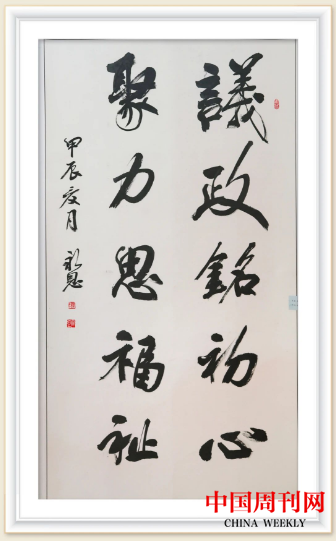 議政銘初心
聚力思福祉
甲辰夏月
中国周刊网
CHINA WEEKLY